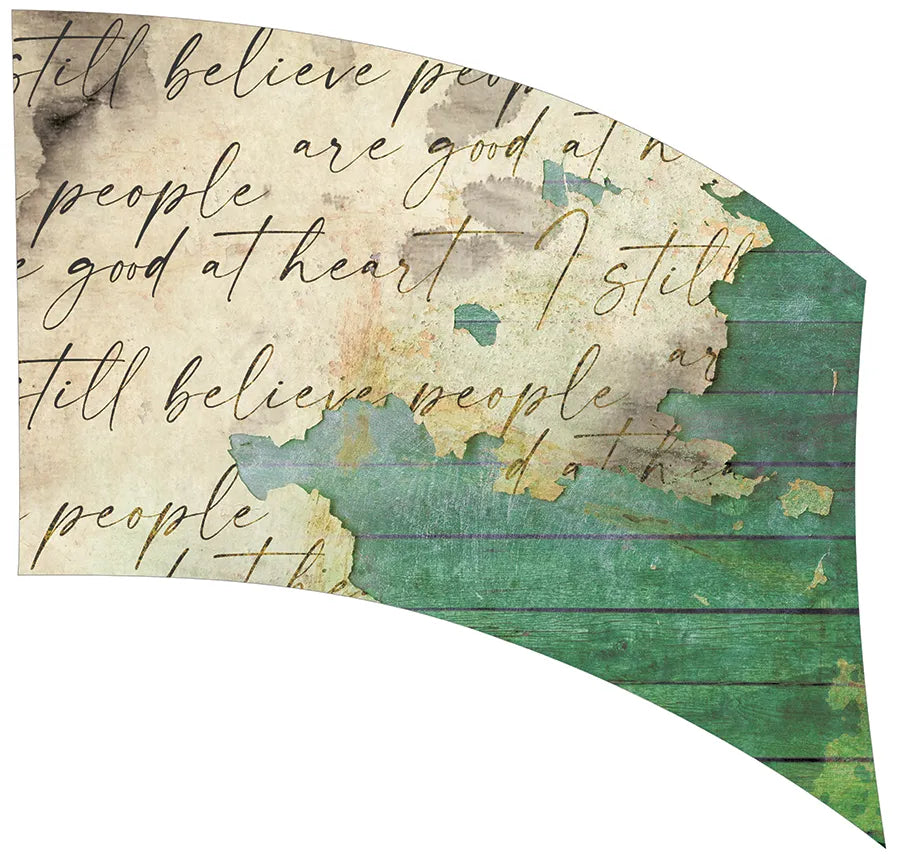 still believe peop
are good at h
people
e good at heart I still
ar
till believe people
d at hear
people
d at hea